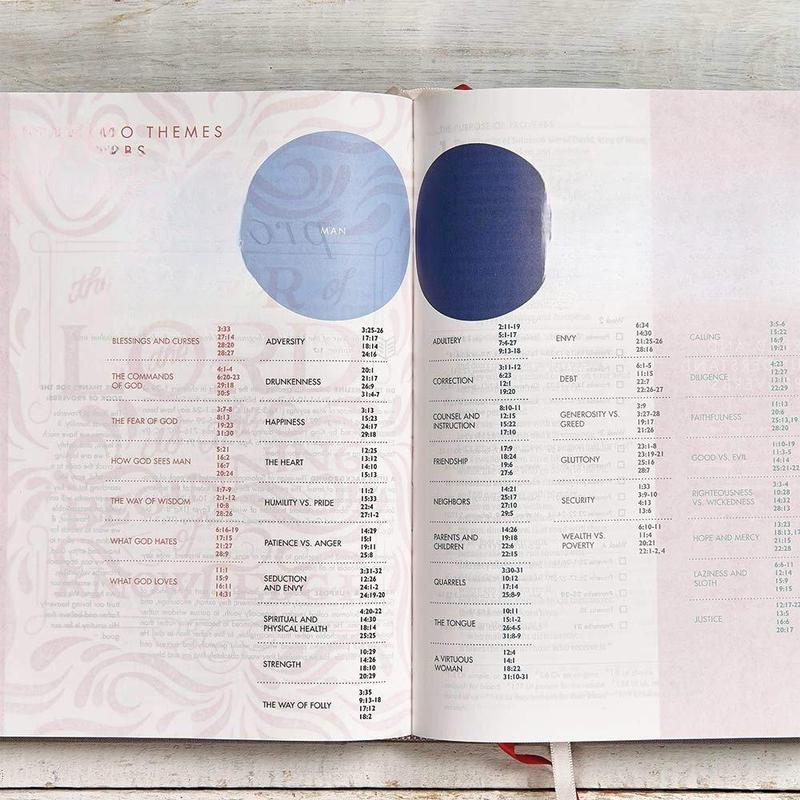 THEMES
MAN
BLESSINGS AND CURSES
3:33
27:14
28:20
28:27
THE COMMANDS
OF GOD
4:1-4
6:20-23
29:18
30:5
THE FEAR OF GOD
3:7-8
8:13
19:23
31:30
HOW GOD SEES MAN
5:21
16:2
16:7
20:24
THE WAY OF WISDOM
1:7-9
2:1-12
10:8
28:26
WHAT GOD HATES
6:16-19
17:15
21:27
28:9
WHAT GOD LOVES
11:1
15:9
16:11
14:31
ADVERSITY
3:25-26
17:17
18:14
24:16
DRUNKENNESS
20:1
21:17
26:9
31:4-7
HAPPINESS
3:13
15:23
24:17
29:18
THE HEART
12:25
13:12
14:10
15:13
HUMILITY VS. PRIDE
11:2
15:33
22:4
27:1-2
PATIENCE VS. ANGER
14:29
15:1
19:11
25:8
SEDUCTION
AND ENVY
3:31-32
12:26
24:1-2
24:19-20
SPIRITUAL AND
PHYSICAL HEALTH
4:20-22
14:30
18:14
25:25
STRENGTH
10:29
14:26
18:10
20:29
THE WAY OF FOLLY
3:35
9:13-18
17:12
18:2
THE PURPOSE OF PROVERBS
ADULTERY
2:11-19
5:1-17
7:4-27
9:13-18
CORRECTION
3:11-12
6:23
12:1
19:20
COUNSEL AND
INSTRUCTION
8:10-11
12:15
15:22
17:10
FRIENDSHIP
17:9
18:24
19:6
27:6
NEIGHBORS
14:21
25:17
27:10
29:5
PARENTS AND
CHILDREN
14:26
19:18
22:6
22:15
QUARRELS
3:30-31
10:12
17:14
25:8-9
THE TONGUE
10:11
15:1-2
26:4-5
31:8-9
A VIRTUOUS
WOMAN
12:4
14:1
18:22
31:10-31
ENVY
6:34
14:30
21:25-26
28:16
DEBT
6:1-5
11:15
22:7
22:26-27
GENEROSITY VS.
GREED
3:9
3:27-28
19:17
21:26
GLUTTONY
23:1-8
23:19-21
25:16
28:7
SECURITY
1:33
3:9-10
4:13
13:6
WEALTH VS.
POVERTY
6:10-11
11:4
20:21
22:1-2, 4
CALLING
3:5-6
15:22
16:9
19:21
DILIGENCE
4:23
12:27
13:11
22:29
FAITHFULNESS
11:13
20:6
25:13,19
28:20
GOOD VS. EVIL
1:10-19
11:3-5
14:14
25:21-22
RIGHTEOUSNESS
VS. WICKEDNESS
3:3-4
10:28
14:32
28:13
HOPE AND MERCY
13:23
18:13, 17
21:15
22:28
LAZINESS AND
SLOTH
6:6-11
12:14
15:9
19:15
JUSTICE
12:17-22
13:5
16:6
20:17